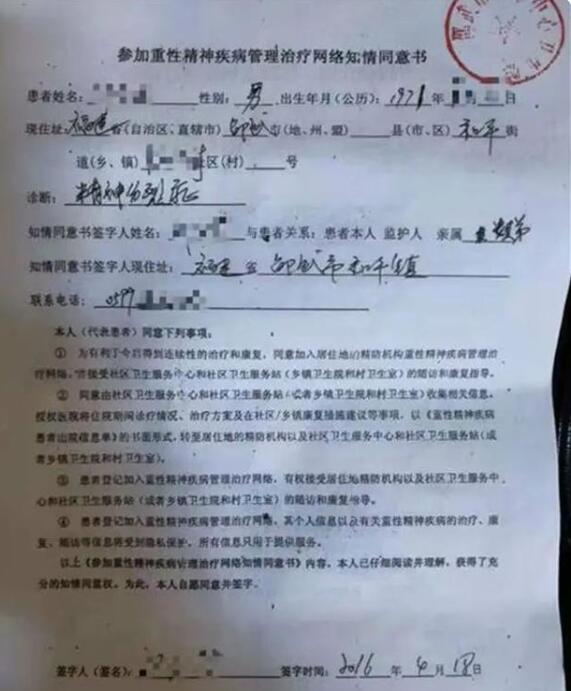 参加重性精神疾病管理治疗网络知情同意书
患者姓名： 性别：男 出生年月(公历)：1971年 日
现住址：福建省(自治区、直辖市)邵武市(地、州、盟) 县(市、区)和平街
道(乡、镇) 社区(村) 号
诊断：精神分裂症
知情同意书签字人姓名： 与患者关系：患者本人 监护人 亲属
知情同意书签字人现住址：福建省邵武市和平镇
联系电话：0599
本人（代表患者）同意下列事项：
① 为有利于今后得到连续性的治疗和康复，同意加入居住地的精防机构重性精神疾病管理治
疗网络，并接受社区卫生服务中心和社区卫生服务站(乡镇卫生院和村卫生室)的随访和康复指导。
② 同意由社区卫生服务中心和社区卫生服务站(或者乡镇卫生院和村卫生室)收集相关信息，
授权医院将住院期间诊疗情况、治疗方案及在社区/乡镇康复措施建议等事项，以《重性精神疾病
患者出院信息单》的书面形式，转至居住地的精防机构以及社区卫生服务中心和社区卫生服务站(或
者乡镇卫生院和村卫生室)。
③ 患者登记加入重性精神疾病管理治疗网络，有权接受居住地精防机构以及社区卫生服务中
心和社区卫生服务站（或者乡镇卫生院和村卫生室）的随访和康复指导。
④ 患者登记加入重性精神疾病管理治疗网络，其个人信息以及有关重性精神疾病的治疗、康
复、随访等信息将受到隐私保护，所有信息只用于提供服务。
以上《参加重性精神疾病管理治疗网络知情同意书》内容，本人已仔细阅读并理解，获得了充
分的知情同意权。为此，本人自愿同意并签字。
签字人（签名）： 签字时间：2016 年 4 月 18 日